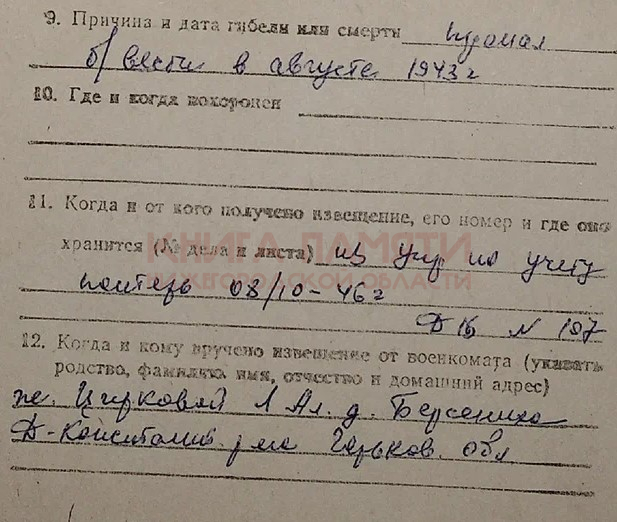 9. Причина и дата гибели или смерти пропал
б/вести в августе 1943 г
10. Где и когда похоронен
11. Когда и от кого получено извещение, его номер и где оно
хранится (№ дела и листа) из Упр по учету
потерь 08/10-46 г
N 107
12. Когда и кому вручено извещение от военкомата (указать
родство, фамилию имя, отчество и домашний адрес)
же. д. Берсениха
Д-Константин. р-на Горьков. обл
КНИГА ПАМЯТИ
НИЖЕГОРОДСКОЙ ОБЛАСТИ